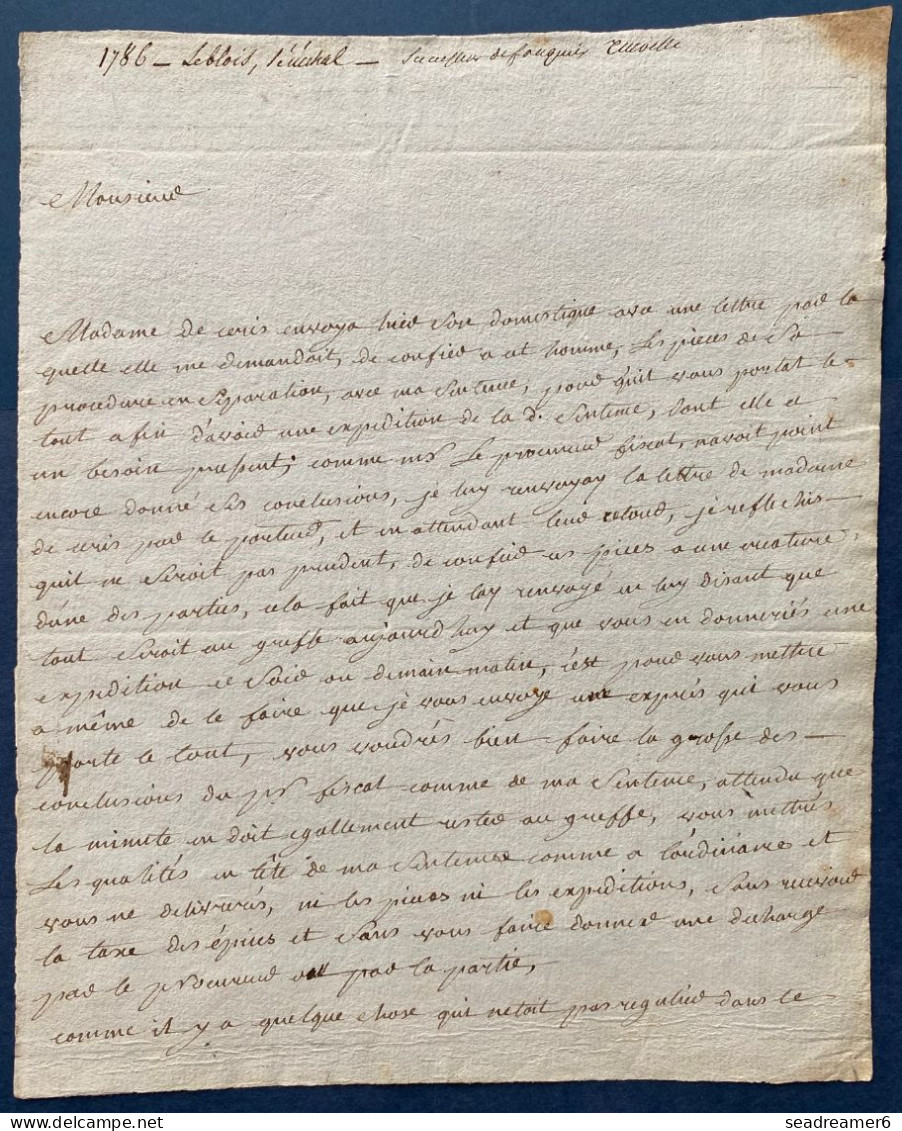 1786 – Leblois, sénéchal – successeur de fouquier
Monsieur
Madame de ceris envoya hier son domestique avec une lettre par la
quelle elle me demandoit, de confier a cet homme, les pieces de sa
procedure en separation, avec ma sentence, pour quil vous portat le
tout afin d'avoir une expedition de la d. sentence, dont elle a
un besoin pressent; comme mr le procureur fiscal, navoit point
encore donné ses conclusions, je luy renvoyay la lettre de madame
de ceris par le porteur, et en attendant leur retour, je reflechis
quil ne seroit pas prudent, de confier ces pieces a une creature
d'une des parties, cela fait que je lay renvoyé en luy disant que
tout seroit au greffe aujourdhuy et que vous en donneriés une
expedition ce soir ou demain matin, c'est pour vous mettre
a même de le faire que je vous envoye un exprés qui vous
porte le tout, vous voudrés bien faire la grosse des
conclusions du pr fiscal comme de ma sentence, attendu que
la minute en doit egallement rester au greffe, vous mettrés
les qualités en tête de ma sentence comme a l'ordinaire et
vous ne delivrerés, ni les pieces ni les expeditions, sans recevoir
la taxe des épices et sans vous faire donner une decharge
par le procureur ou par la partie,
comme il y a quelque chose qui netoit pas regulier dans le
seadreamer6